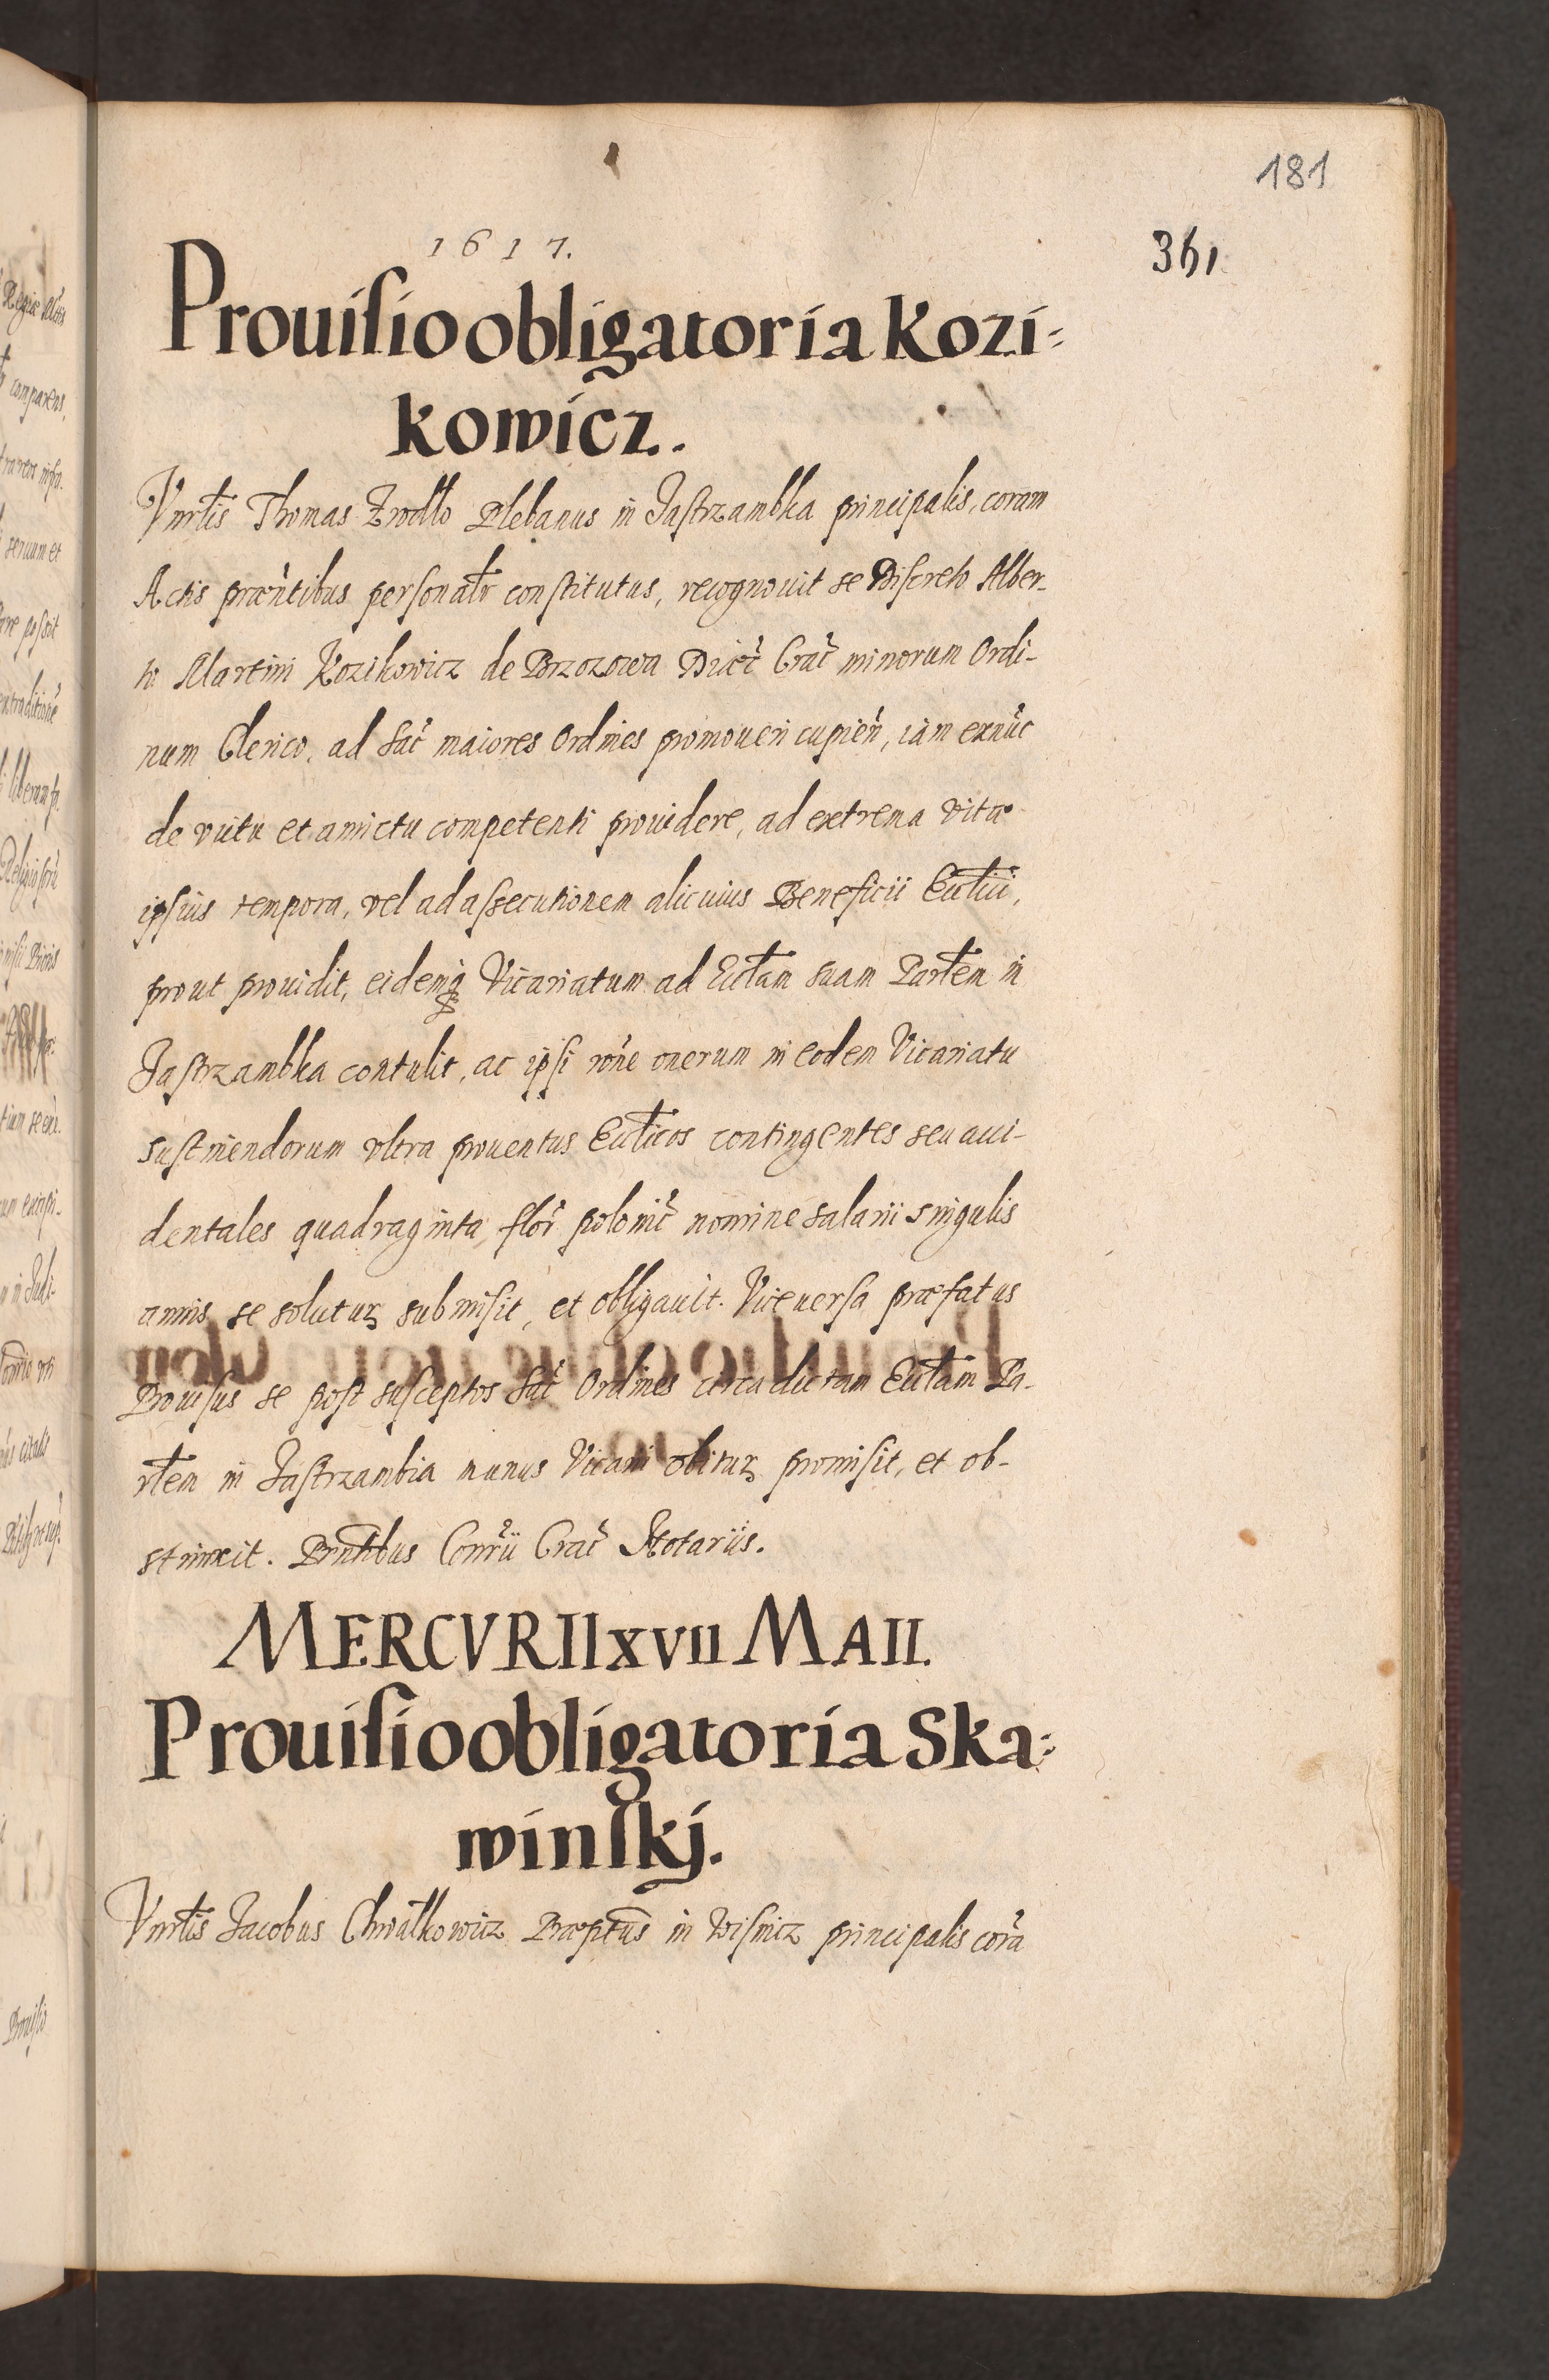 181
361
1617.
Prouisio obligatoria Kozi=
kowicz.
Vnrlis Thomas Zrodło Plebanus in Jastrzambka principalis, coram
Actis præntibus personalr constitutus, recognouit se Discreto Alber-
to Martini Kozikowicz de Brzozowa Diæc Crac minorum Ordi-
num Clerico, ad Sac maiores Ordines promoueri cupien, iam exnuc
de victu et amictu competenti prouidere, ad extrema vitæ
ipsius tempora, vel ad assecutionem alicuius Beneficii Ecclici,
prout prouidit, eidemq Vicariatum ad Ecclam suam Parlem in
Jastrzambka contulit, ac ipsi rone onerum in eodem Vicariatu
sustinendorum vltra prouentus Ecclicos contingentes seu acci-
dentales quadraginta flor polonic nomine salarii singulis
annis se soluturz submisit, et obligauit. Viceuersa præfatus
Prouisus se post susceptos Sac Ordines circa dictam Ecclam Pa-
rlem in Jastrzambia munus Vicarii obiturz promisit, et ob-
strinxit. Prntibus Conrii Crac Notariis.
MERCVRII XVII MAII.
Prouisio obligatoria Ska=
winskj.
Vnrlis Jacobus Chwalkowicz Præptus in Wisnicz principalis cora